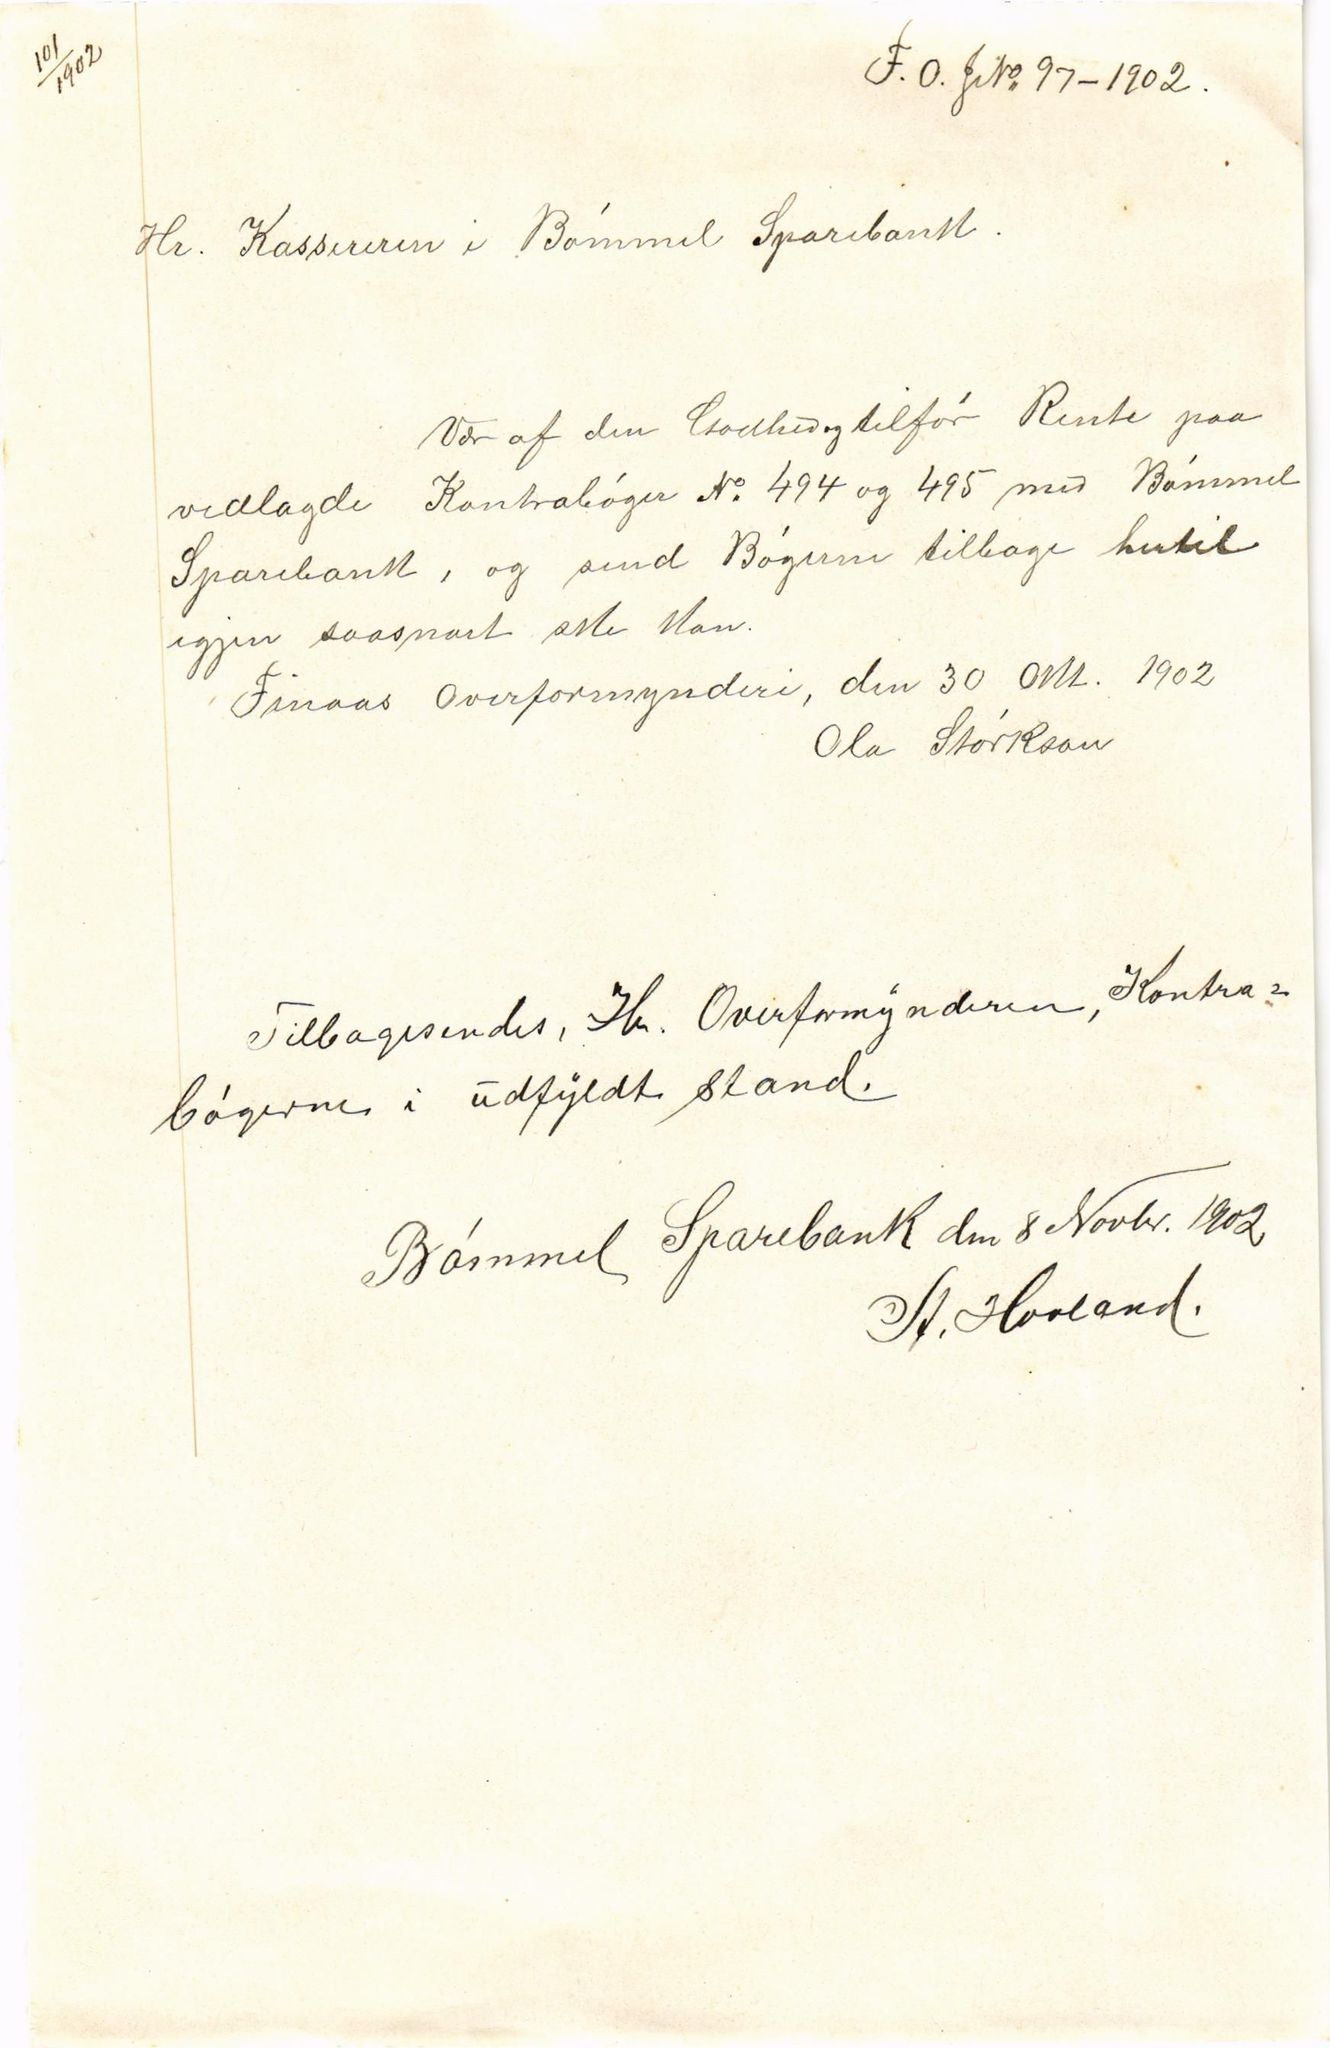 101/1902
F. O. J№ 97-1902.
Hr. Kassereren i Bómmel Sparebank.
Vær af den Godhed og tilfór Rente paa
vedlagde Kontrabóger No. 494 og 495 med Bómmel
Sparebank, og send Bógerne tilbage hertil
igjen saasnart ske kan.
Finaas Overformynderi, den 30 Okt. 1902
Ola Stórkson
Tilbagesendes, Hr. Overformÿnderen, Kontra=
bógerne i ūdfÿldt stand.
Bómmel Sparebank den 8 Novbr. 1902
St. Hovland.